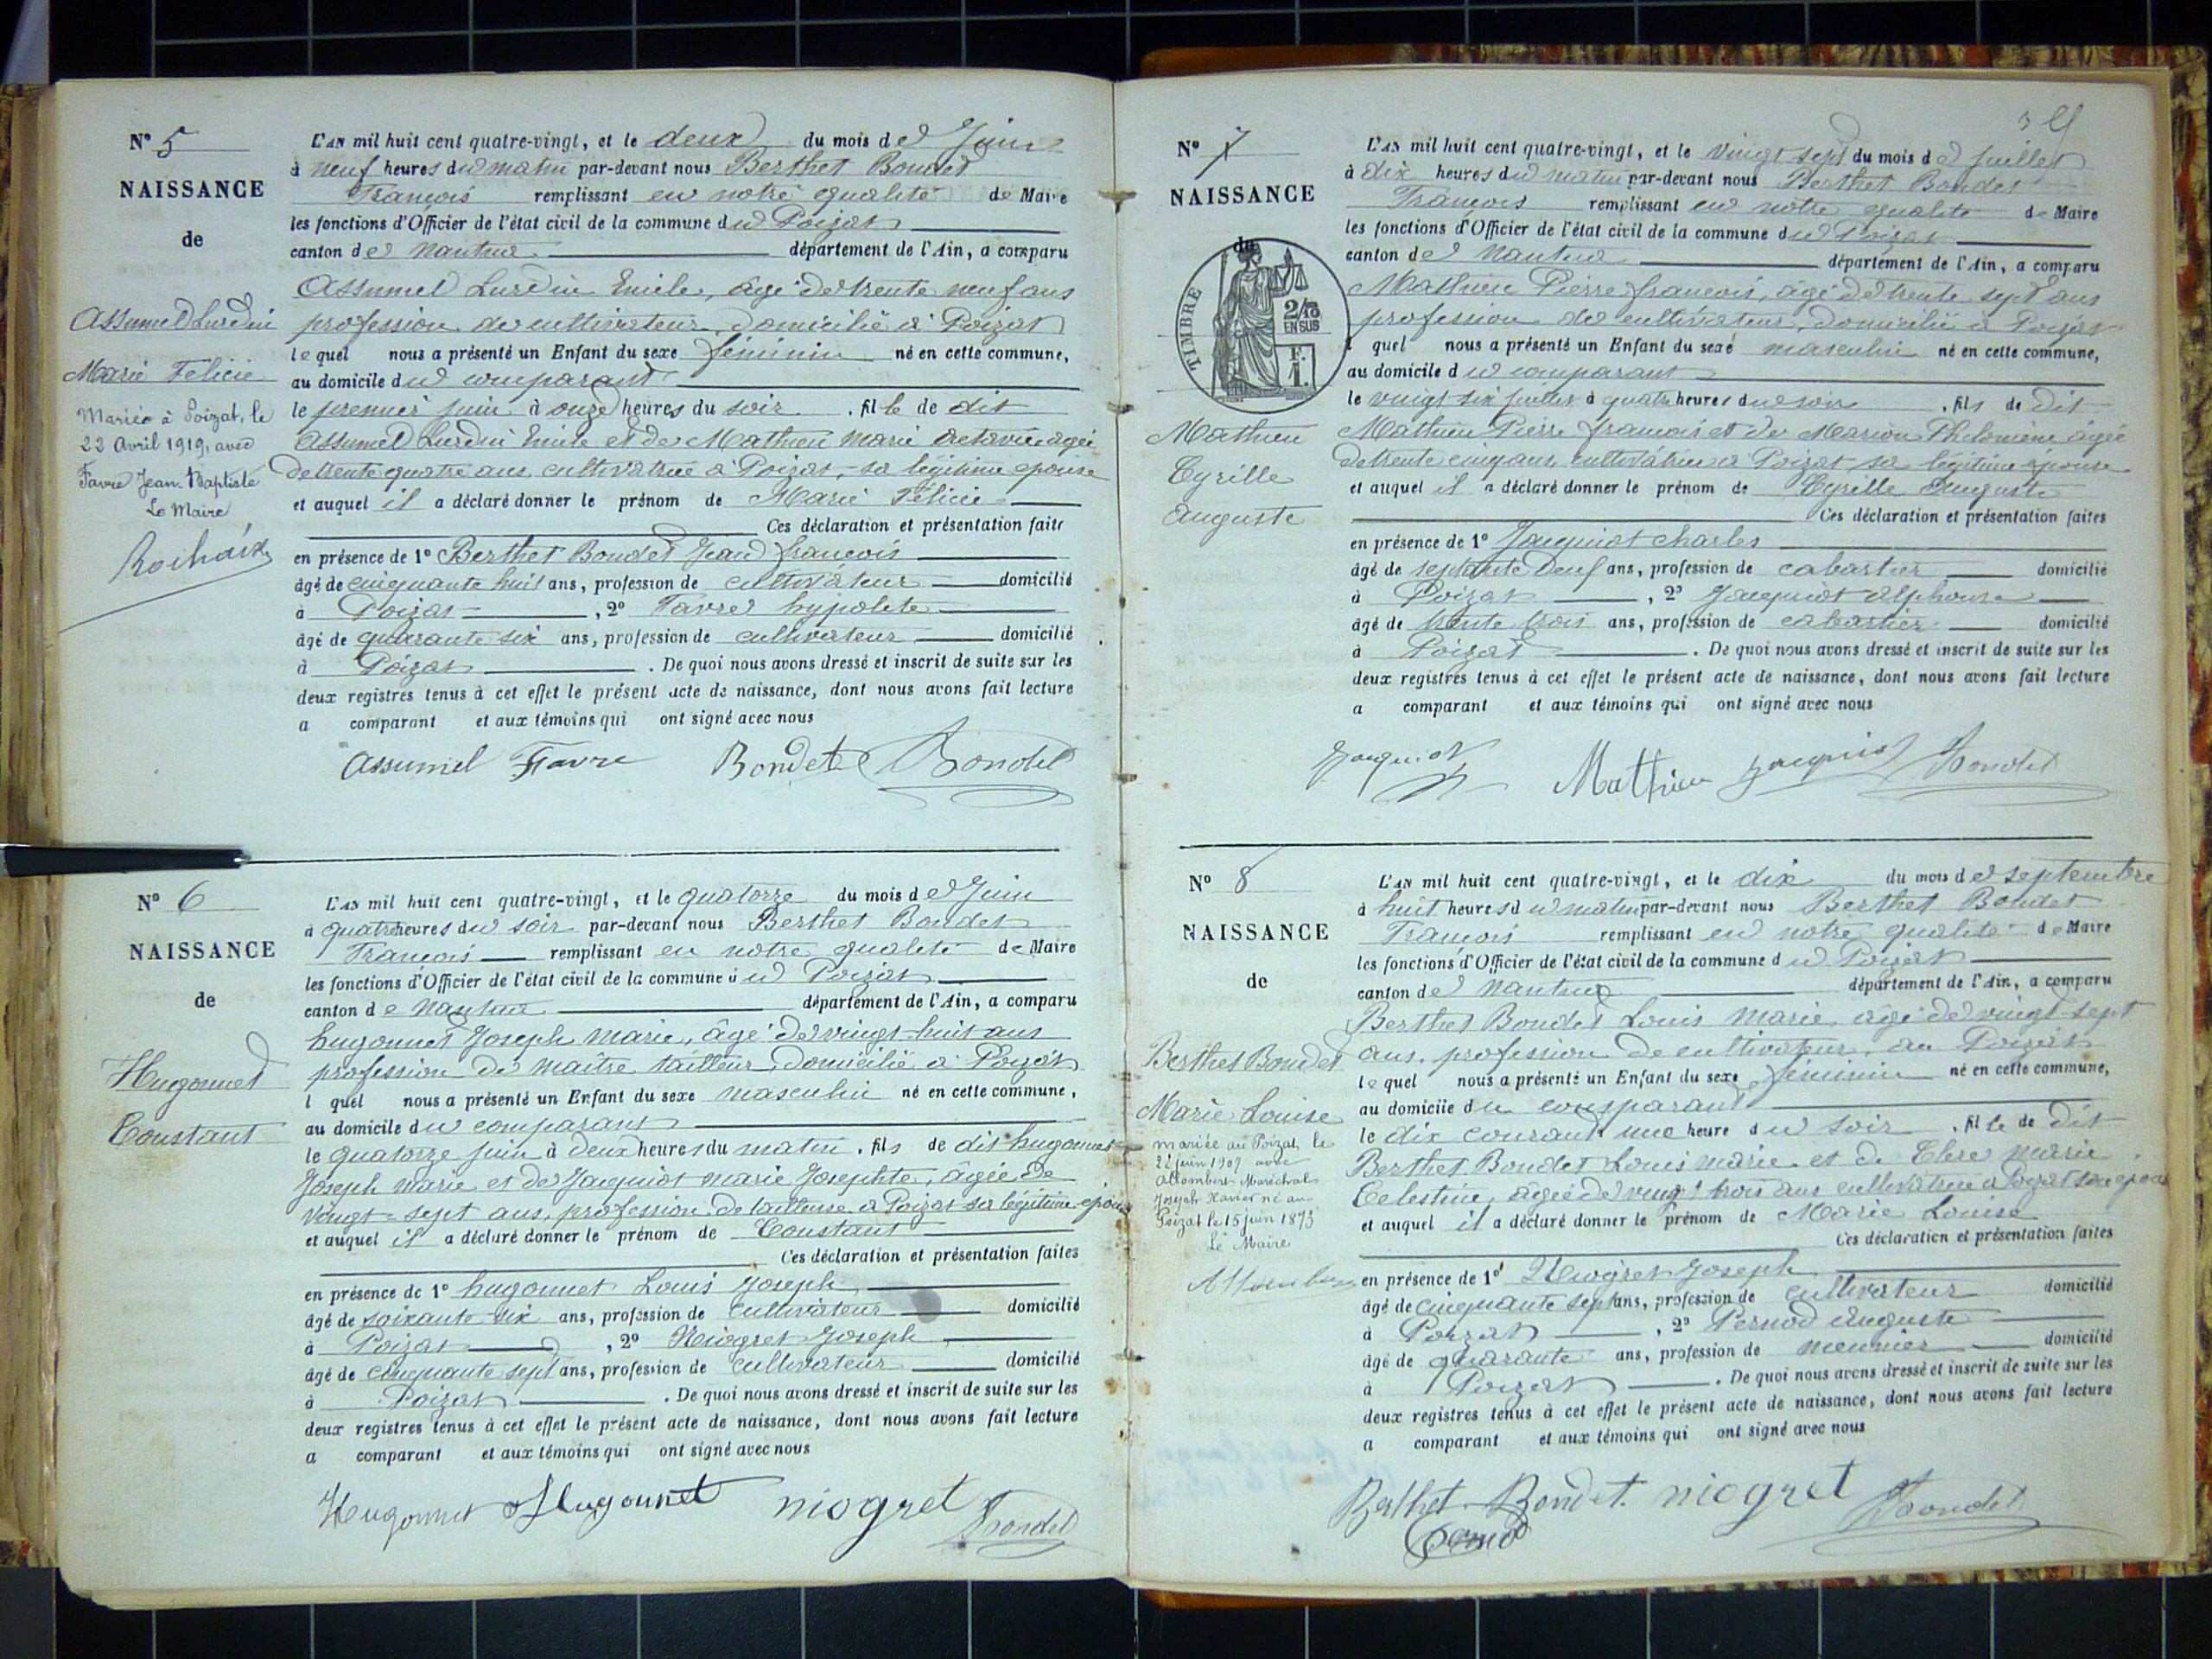 N° 5
NAISSANCE
de
Assumel Lurdin
Marie Felicie
Mariée à Poizat, le
22 Avril 1919, avec
Favre Jean-Baptiste
Le Maire
Rochaix
L'AN mil huit cent quatre-vingt, et le deux du mois de Juin
à neuf heures du matin par-devant nous Berthet Bondet
François remplissant en notre qualité de Maire
les fonctions d'Officier de l'état civil de la commune du Poizat
canton de Nantua département de l'Ain, a comparu
Assumel Lurdin Emile, âgé de trente neuf ans
profession de cultivateur, domicilié à Poizat
lequel nous a présenté un Enfant du sexe féminin né en cette commune,
au domicile du comparant
le premier juin à onze heures du soir, fille de dit
Assumel Lurdin Emile et de Mathieu Marie Octavie agée
de trente quatre ans, cultivatrice à Poizat, sa légitime épouse
et auquel il a déclaré donner le prénom de Marie Félicie
Ces déclaration et présentation faite
en présence de 1° Berthet Bondet Jean françois
âgé de cinquante huit ans, profession de cultivateur domicilié
à Poizat, 2° Favre hypolite
âgé de quarante six ans, profession de cultivateur domicilié
à Poizat. De quoi nous avons dressé et inscrit de suite sur les
deux registres tenus à cet effet le présent acte de naissance, dont nous avons fait lecture
a comparant et aux témoins qui ont signé avec nous
Assumel Favre Bondet Bondet
N° 6
NAISSANCE
de
Hugonnet
Constant
L'AN mil huit cent quatre-vingt, et le quatorze du mois de Juin
à quatre heures du soir par-devant nous Berthet Bondet
François remplissant en notre qualité de Maire
les fonctions d'Officier de l'état civil de la commune du Poizat
canton de Nantua département de l'Ain, a comparu
hugonnet Joseph marie, âgé de vingt-huit ans
profession de maître tailleur, domicilié à Poizat
l quel nous a présenté un Enfant du sexe masculin né en cette commune,
au domicile du comparant
le quatorze juin à deux heures du matin, fils de dit hugonnet
Joseph marie et de Jacquiot marie Josephte, âgée de
vingt-sept ans, profession de tailleuse à Poizat sa légitime épouse
et auquel il a déclaré donner le prénom de Constant
Ces déclaration et présentation faites
en présence de 1° hugonnet Louis Joseph
âgé de soixante six ans, profession de cultivateur domicilié
à Poizat, 2° Niogret Joseph
âgé de cinquante sept ans, profession de cultivateur domicilié
à Poizat. De quoi nous avons dressé et inscrit de suite sur les
deux registres tenus à cet effet le présent acte de naissance, dont nous avons fait lecture
a comparant et aux témoins qui ont signé avec nous
Hugonnet Hugonnet niogret Bondet
N° 7
NAISSANCE
du
TIMBRE
2/10
EN SUS
F.
1.
Mathieu
Cyrille
Auguste
L'AN mil huit cent quatre-vingt, et le vingt sept du mois de juillet
à dix heures du matin par-devant nous Berthet Bondet
François remplissant en notre qualité de Maire
les fonctions d'Officier de l'état civil de la commune du Poizat
canton de Nantua département de l'Ain, a comparu
Mathieu Pierre françois, âgé de trente sept ans
profession de cultivateur, domicilié à Poizat
quel nous a présenté un Enfant du sexe masculin né en cette commune,
au domicile du comparant
le vingt six juillet à quatre heures du soir, fils de dit
Mathieu Pierre françois et de Marion Philomène âgée
de trente cinq ans, cultivatrice à Poizat sa légitime épouse
et auquel il a déclaré donner le prénom de Cyrille Auguste
Ces déclaration et présentation faites
en présence de 1° Jacquiot charles
âgé de septante neuf ans, profession de cabartier domicilié
à Poizat, 2° Jacquiot alphonse
âgé de trente trois ans, profession de cabartier domicilié
à Poizat. De quoi nous avons dressé et inscrit de suite sur les
deux registres tenus à cet effet le présent acte de naissance, dont nous avons fait lecture
a comparant et aux témoins qui ont signé avec nous
Jacquiot Mathieu Jacquiot Bondet
N° 8
NAISSANCE
de
Berthet Bondet
Marie Louise
mariée au Poizat, le
juin avec
Allombert-Maréchal
Joseph Xavier né au
Poizat le 15 juin 1873
Le Maire
L'AN mil huit cent quatre-vingt, et le dix du mois de septembre
à huit heures du matin par-devant nous Berthet Bondet
François remplissant en notre qualité de Maire
les fonctions d'Officier de l'état civil de la commune du Poizat
canton de Nantua département de l'Ain, a comparu
Berthet Bondet Louis Marie, agé de vingt-sept
ans, profession de cultivateur, au Poizat
lequel nous a présenté un Enfant du sexe féminin né en cette commune,
au domicile du comparant
le dix courant une heure du soir, fille de dit
Berthet Bondet Louis marie et de Marie
Celestine, agée de vingt trois ans cultivatrice à Poizat son épouse
et auquel il a déclaré donner le prénom de Marie Louise
Ces déclaration et présentation faites
en présence de 1° Niogret Joseph
âgé de cinquante sept ans, profession de cultivateur domicilié
à Poizat, 2° Pernod Auguste
âgé de quarante ans, profession de meunier domicilié
à Poizat. De quoi nous avons dressé et inscrit de suite sur les
deux registres tenus à cet effet le présent acte de naissance, dont nous avons fait lecture
a comparant et aux témoins qui ont signé avec nous
Berthet-Bondet niogret Bondet
Pernod